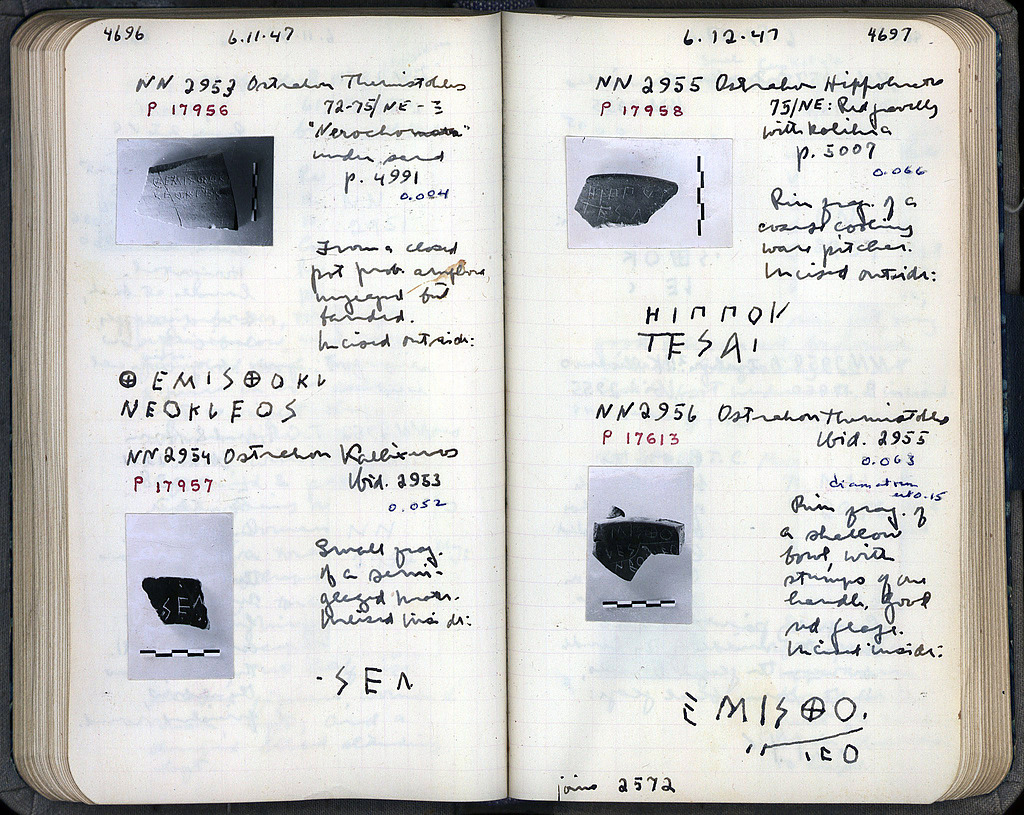 4696
6.11.47
NN 2953 Ostrakon Themistokles
P 17956
72-75/NE - Ξ
under sand
p. 4991
0.084
From a closed
pot prob. amphora,
unglazed but
banded.
Incised outside:
ΘEMISΘOKL
NEOKLEOS
NN 2954 Ostrakon Kallixenos
P 17957
Ibid. 2953
0.052
Small frag.
of a semi-
glazed
Incised inside:
·SEΛ
6.12.47
4697
NN 2955 Ostrakon Hippokrates
P 17958
75/NE: Red gravelly
with
p. 5007
0.066
Rim frag. of a
coarse cooking
ware pitcher.
Incised outside:
HIΠΠOK
TESAI
NN 2956 Ostrakon Themistokles
P 17613
Ibid. 2955
0.063
diameter
est 0.15
Rim frag. of
a shallow
bowl, with
stumps of one
handle, good
red glaze.
Incised inside:
EMISΘO.
EO
joins 2572